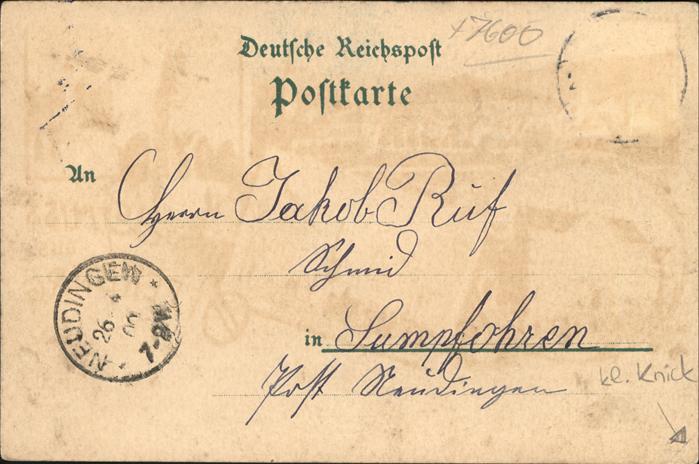 +7600
Deutsche Reichspost
Postkarte
An
Herrn Jakob Ruf
Schmid
in Sumpfohren
Post Neudingen
NEUDINGEN
26 4
00
7-8N
kl. Knick